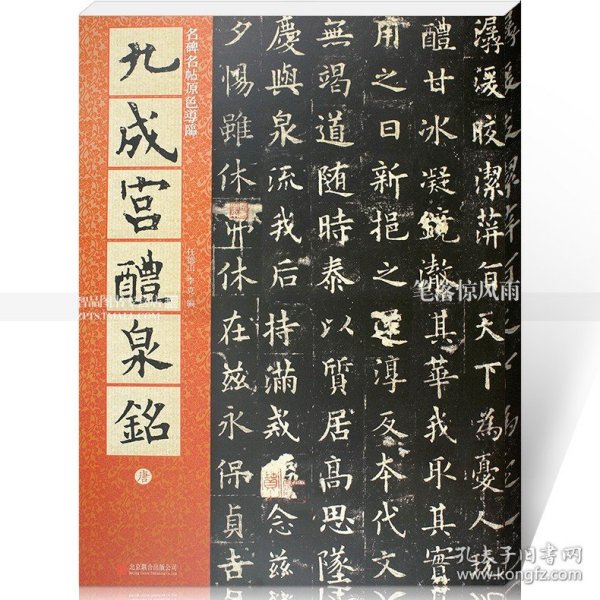 潺湲晈潔蓱旨天下為憂人玩
醴甘冰凝鏡澈其華我取其實
用之日新挹之還淳反本代文
無竭道随時泰以質居高思墜
慶與泉流我后持滿戒溢念兹
夕惕雖休弗休在兹永保貞吉
名碑名帖原色導臨
九成宫醴泉銘
唐
北京联合出版公司
笔落惊风雨
ZPTS.TMALL.COM
孔夫子旧书网
kongfz.com